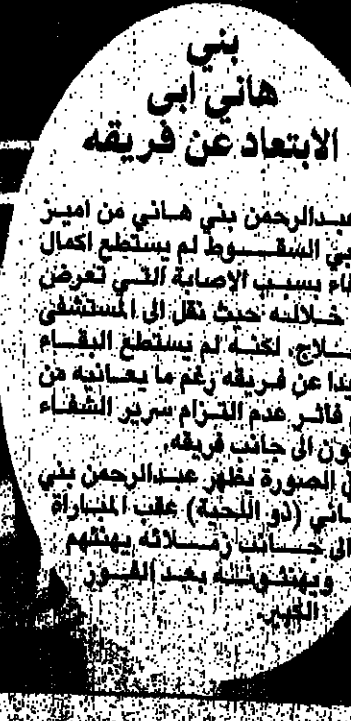 بني
هاني ابى
الابتعاد عن فريقه
عبدالرحمن بني هاني من اميز
السقوط لم يستطع اكمال
بسبب الاصابة التي تعرض
خلاله حيث نقل الى المستشفى
لكنه لم يستطع البقاء
عن فريقه رغم ما يعانيه من
فاثر عدم التزام سرير الشفاء
الى جانب فريقه.
الصورة يظهر عبدالرحمن بني
(ذو اللحية) عقب المباراة
الى جانب زملائه يهنئهم
ويهنئونه بعد الفوز